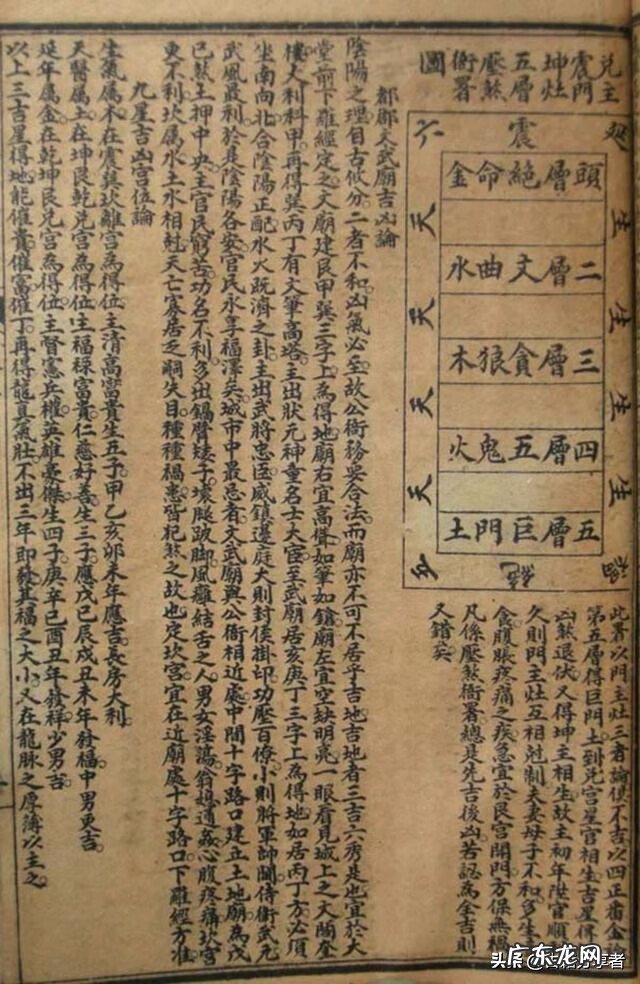 兌主
震門
坤灶
五層
壓煞
衙署
圖
震
金命絶層頭
水曲文層二
木狼貪層三
火鬼五層四
土門巨層五
天
天
天
天
生
生
生
生
此署以門主灶三者論俱不吉以四正番金論
第五層得巨門土到兌宮星宮相生吉星得
凶煞退伏又得坤主相生故主初年陞官順
久則門主灶互相尅制夫妻母子不和多生
食腹脹疼痛之疾急宜於艮宮開門方保無禍
凡係壓煞衙署總是先吉後凶若認為全吉則
又錯矣
都郡文武廟吉凶論
陰陽之理自古攸分二者不和凶氣必至故公衙務要合法而廟亦不可不居乎吉地吉地者三吉六秀是也宜於大
堂前下羅經定之文廟建艮甲巽三字上為得地廟右宜高聳如筆如鎗廟左宜空缺明亮一眼看見城上之文閣奎
樓大利科甲再得巽丙丁有文筆高塔主出狀元神童名士大宦至武廟居亥庚丁三字上為得地如居丙丁方必須
坐南向北合陰陽正配水火既濟之卦主出武將忠臣威鎮邊庭大則封侯掛印功壓百僚小則將軍帥閫侍衛武元
武風最利於是陰陽各安官民永享福澤矣城市中最忌者文武廟與公衙相近處中間十字路口建立土地廟為戊
已煞土押中央主官民窮苦功名不利多出鍋臂矮子壞腿跛脚風癱結舌之人男女淫蕩翁媳通姦心腹疼痛坎宮
更不利坎属水土水相尅夭亡寡居乏嗣失目種種禍患皆犯煞之故也定坎宮宜在近廟處十字路口下羅經方准
九星吉凶宮位論
生氣属木在震巽坎離宮為得位主清高富貴生五子甲乙亥卯未年應吉長房大利
天醫属土在坤艮乾兌宮為得位主福祿富貴仁慈好善生三子應戊己辰戌丑未年發福中男更吉
延年属金在乾坤艮兌宮為得位主督憲兵權英雄豪傑生四子庚辛己酉丑年發祥少男吉
以上三吉星得地能催貴催富催丁再得龍真氣壯不出三年即發其福之大小又在龍脉之厚薄以主之
头条
广东龙网